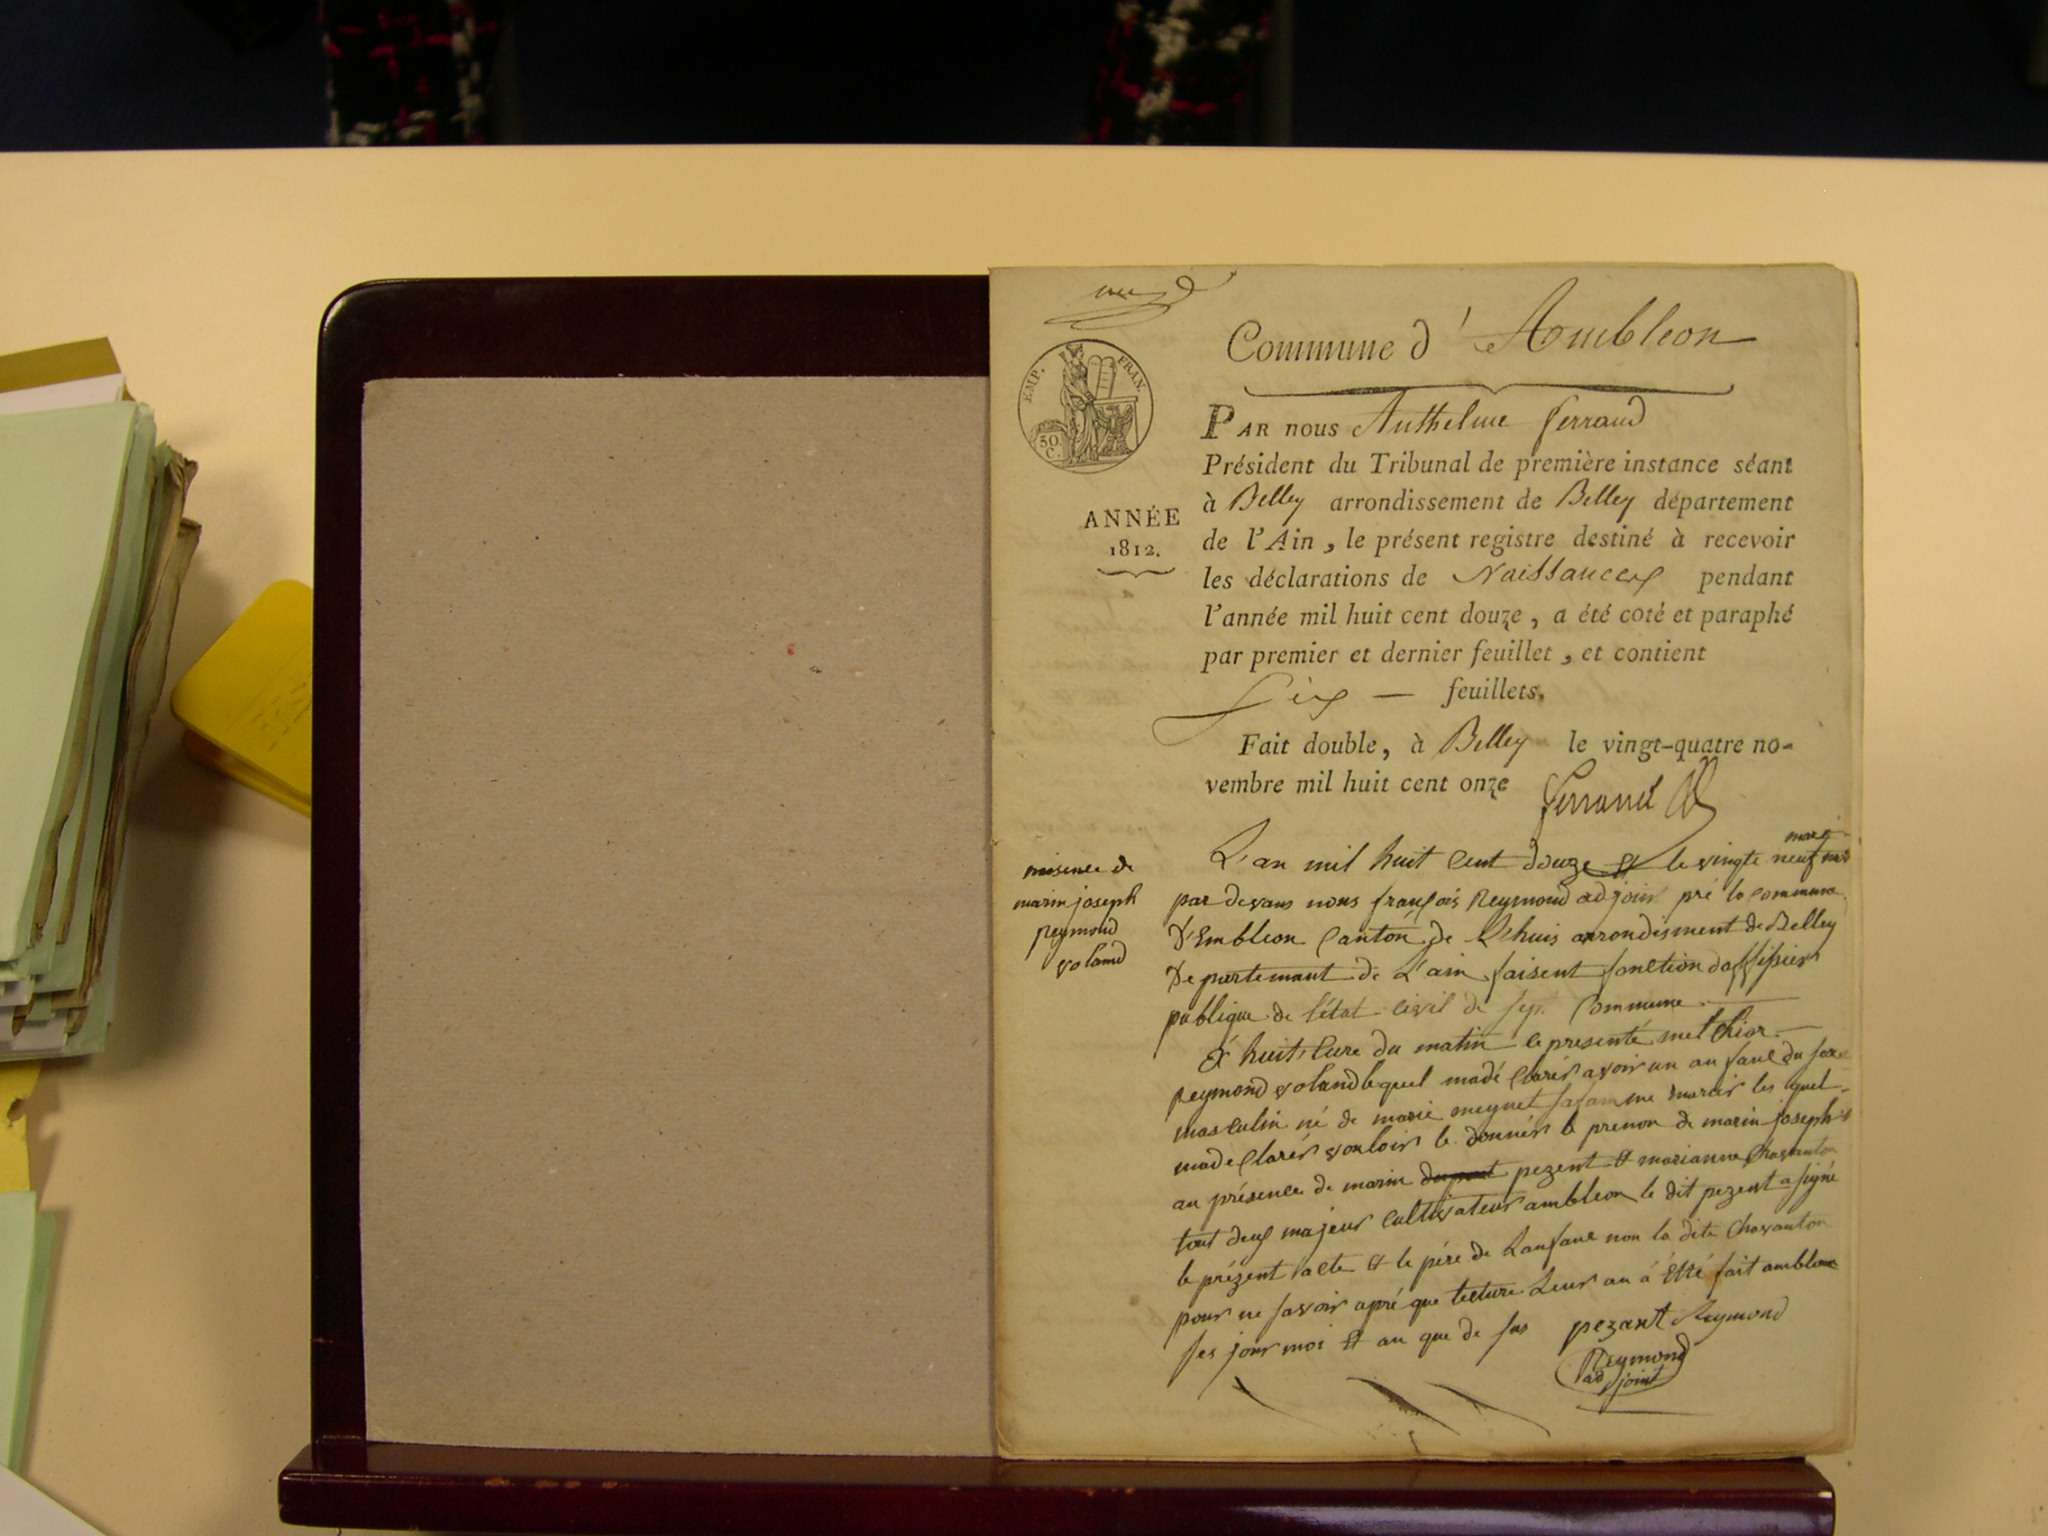 Commune d'Ambleon
EMP. FRAN.
50.
C.
PAR nous Anthelme ferrand
Président du Tribunal de première instance séant
à Belley arrondissement de Belley département
ANNÉE
1812.
de l'Ain, le présent registre destiné à recevoir
les déclarations de Naissances pendant
l'année mil huit cent douze, a été coté et paraphé
par premier et dernier feuillet, et contient
Six — feuillets.
Fait double, à Belley le vingt-quatre no-
vembre mil huit cent onze ferrand
misence de
marin joseph
reymond
voland
L'an mil huit cent douze et le vingte neuf mars
par devans nous françois Reymond adjoin pré la commune
D'Embleon Canton de L'huis arrondisment de Belley
Departemant de L'ain faisent fonction dofficier
publique de l'état civil de Commune
à huit eure du matin ce presenté melchior
Reymond voland lequel madé clarér avoir un anfanc du sexe
masculin né de marie meynet safamme les quel
madeclarér vouloir le donnér le prenon de marin joseph
au présence de marin pezent et marianne Chavanton
tout deux majeur cultivateur ambleon le dit pezent a signé
le prézent acte et le pére de Lanfanc non la dite Chavanton
pour ne savoir apré que lecture Leur an á été fait ambleon
ses jour moi et an que de sus pezant Reymond
Reymond
ad joint